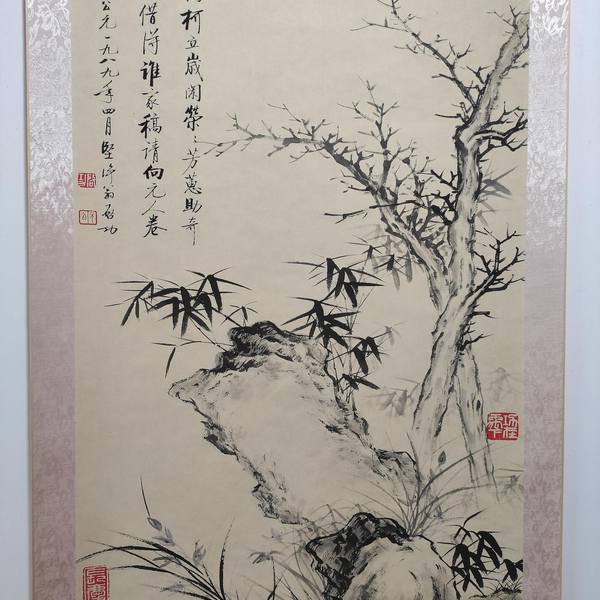 柯立歲闌榮々芳蕙助奇
借得誰家稿請向元人卷
公元一九八九年四月堅淨翁啟功